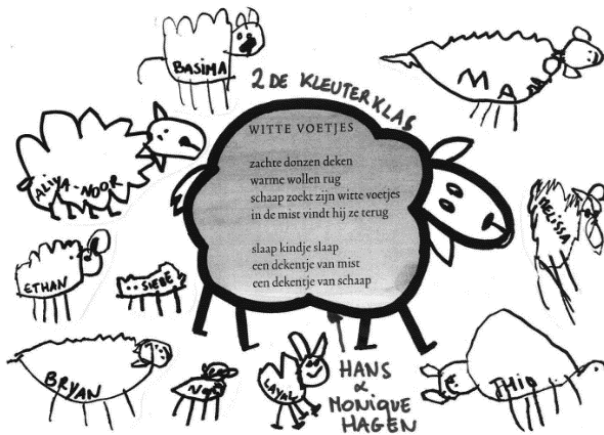 BASIMA
2 DE KLEUTERKLAS
MA
ALIYA-NOOR
WITTE VOETJES
zachte donzen deken
warme wollen rug
schaap zoekt zijn witte voetjes
in de mist vindt hij ze terug
slaap kindje slaap
een dekentje van mist
een dekentje van schaap
MELISSA
ETHAN
SIEBE
BRYAN
LAYAL
HANS
&
MONIQUE
HAGEN